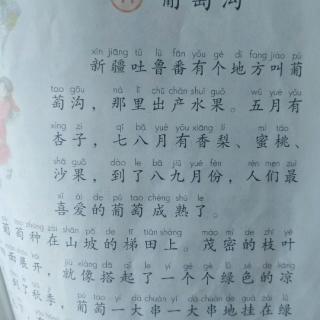 葡萄沟
xīn jiāng tǔ lǔ fān yǒu gè dì fang jiào pú
新疆吐鲁番有个地方叫葡
tao gōu nà lǐ chū chǎn shuǐ guǒ wǔ yuè yǒu
萄沟，那里出产水果。五月有
xìng zi qī bā yuè yǒu xiāng lí mì táo
杏子，七八月有香梨、蜜桃、
shā guǒ dào le bā jiǔ yuè fèn rén men zuì
沙果，到了八九月份，人们最
xǐ ài de pú tao chéng shú le
喜爱的葡萄成熟了。
tao zhòng zài shān pō de tī tián shàng mào mì de zhī yè
葡萄种在山坡的梯田上。茂密的枝叶
kāi jiù xiàng dā qǐ le yí gè gè lǜ sè de liáng
面展开，就像搭起了一个个绿色的凉
pú tao yí dà chuàn yí dà chuàn de guà zài lǜ
到了秋季，葡萄一大串一大串地挂在绿